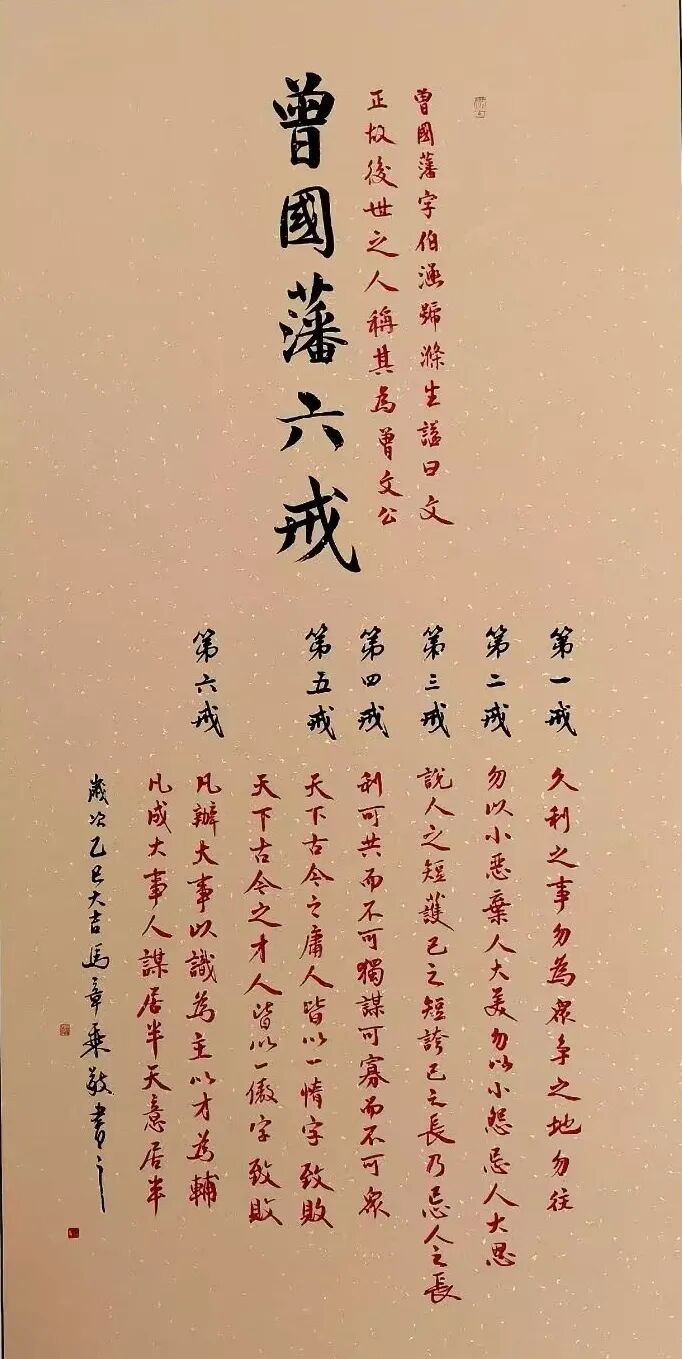 曾國藩字伯涵號滌生謚曰文
正故後世之人稱其為曾文公
曾國藩六戒
第一戒 久利之事勿為衆争之地勿往
第二戒 勿以小惡棄人大美勿以小怨忌人大恩
第三戒 說人之短護己之短誇己之長乃忌人之長
第四戒 利可共而不可獨謀可寡而不可衆
第五戒 天下古今之庸人皆以一惰字致敗
天下古今之才人皆以一傲字致敗
第六戒 凡辦大事以識為主以才為輔
凡成大事人謀居半天意居半
歲次乙巳大吉馬章乘敬書之